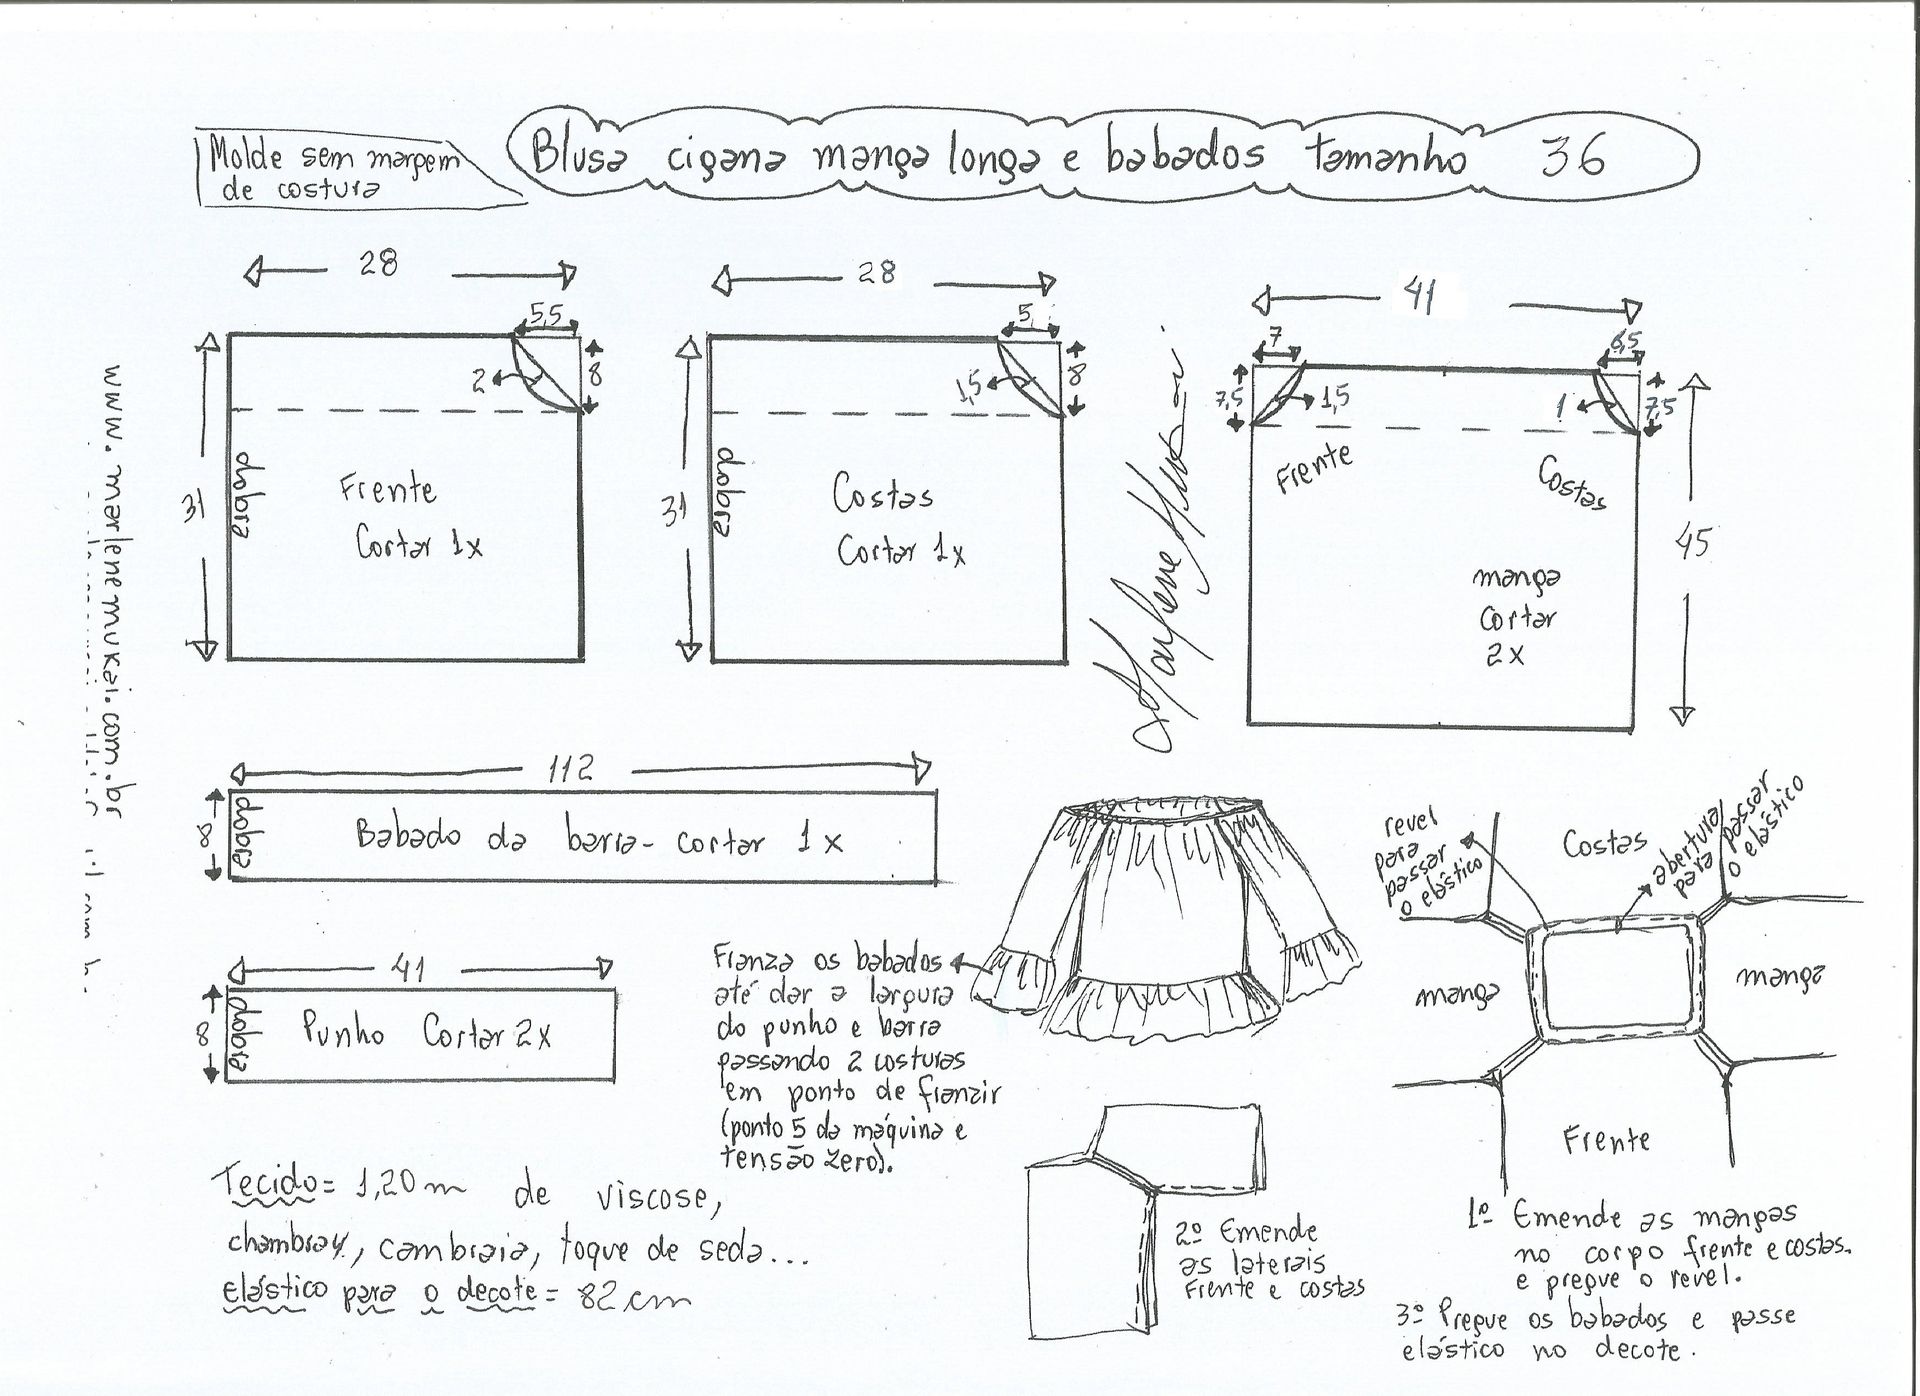 Molde sem margem
de costura
Blusa cigana manga longa e babados tamanho 36
28
5,5
8
2
31
dobra
Frente
Cortar 1x
28
5
8
1,5
31
dobra
Costas
Cortar 1x
41
7
6,5
7,5
1,5
1
7,5
Frente
Costas
45
manga
cortar
2x
www.marlenemukai.com.br
112
8
dobra
Babado da barra- cortar 1x
41
8
dobra
Punho Cortar 2x
Franza os babados
até dar a largura
do punho e barra
passando 2 costuras
em ponto de franzir
(ponto 5 da máquina e
tensão zero).
Tecido= 1,20m de viscose,
chambray, cambraia, toque de seda...
elástico para o decote= 82cm
revel
para
passar
o elástico
Costas
abertura
para passar
o elástico
manga
manga
Frente
2º Emende
as laterais
Frente e costas
1º Emende as mangas
no corpo frente e costas.
e pregue o revel.
3º Pregue os babados e passe
elástico no decote.